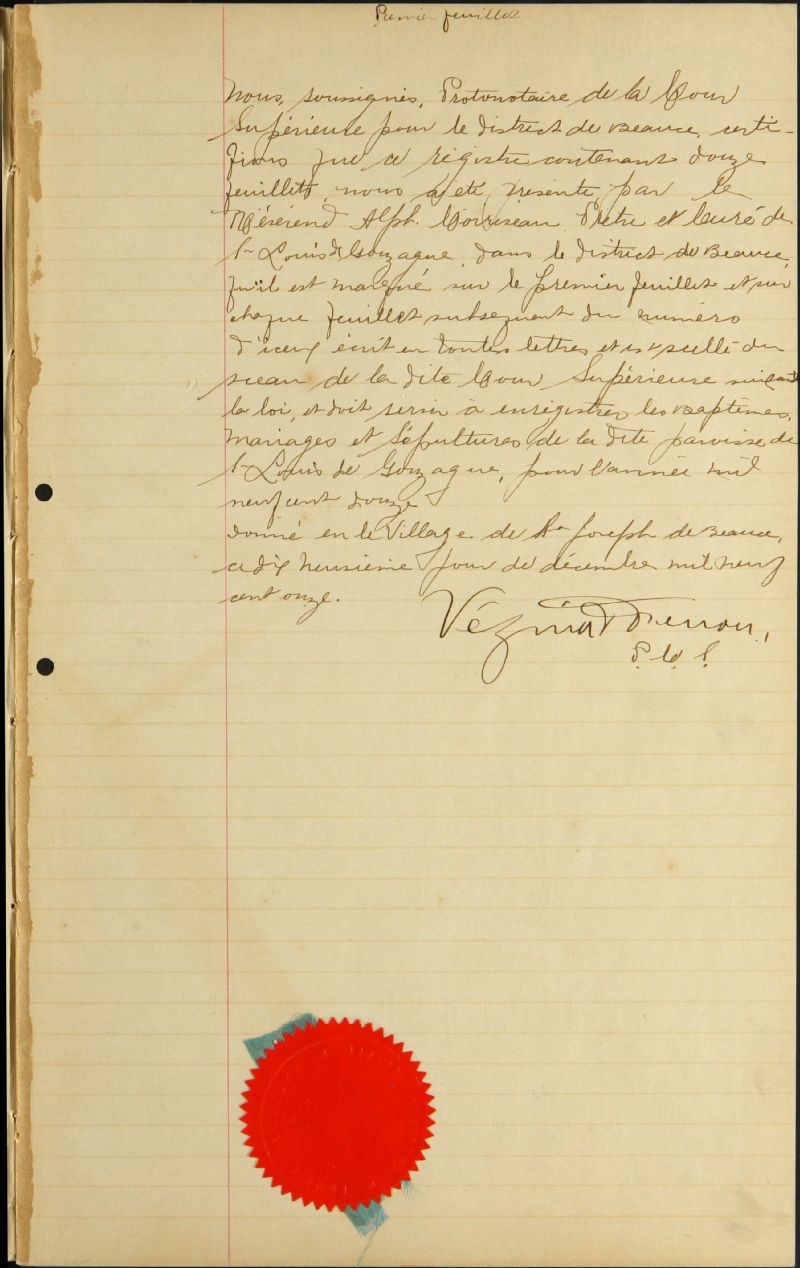 Premier feuillet
Nous, soussignés, Protonotaire de la Cour
Supérieure pour le district de Beauce, certi-
fions que ce régistre contenant douze
feuillets, nous a été présenté par le
Révérend Alph. Prêtre et Curé de
St Louis de Gonzague, dans le district de Beauce,
qu'il est marqué sur le premier feuillet et sur
chaque feuillet subséquent du numéro
d'iceux écrit en toutes lettres et est scellé du
sceau de la dite Cour Supérieure suivant
la loi, et doit servir à enrégistrer les Baptêmes,
Mariages et Sépultures de la dite paroisse de
St Louis de Gonzague, pour l'année mil
neuf cent douze
Donné en le Village de St Joseph de Beauce,
ce dix neuvième jour de décembre mil neuf
cent onze.
Vézina
P. C. S.